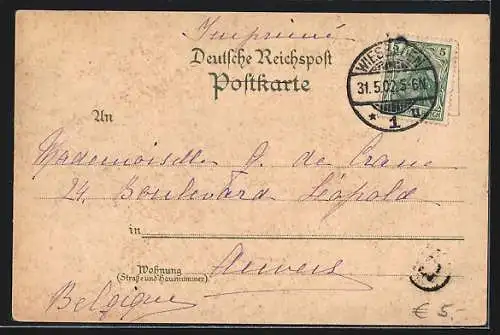 Imprimé
Deutsche Reichspost
Postkarte
WIESBADEN
31.5.02.5-6N.
* 1 u
5
An
Mademoiselle J. de Crane
24 Boulevard Léopold
in
Anvers
Wohnung
(Straße und Hausnummer)
Belgique
€ 5,-